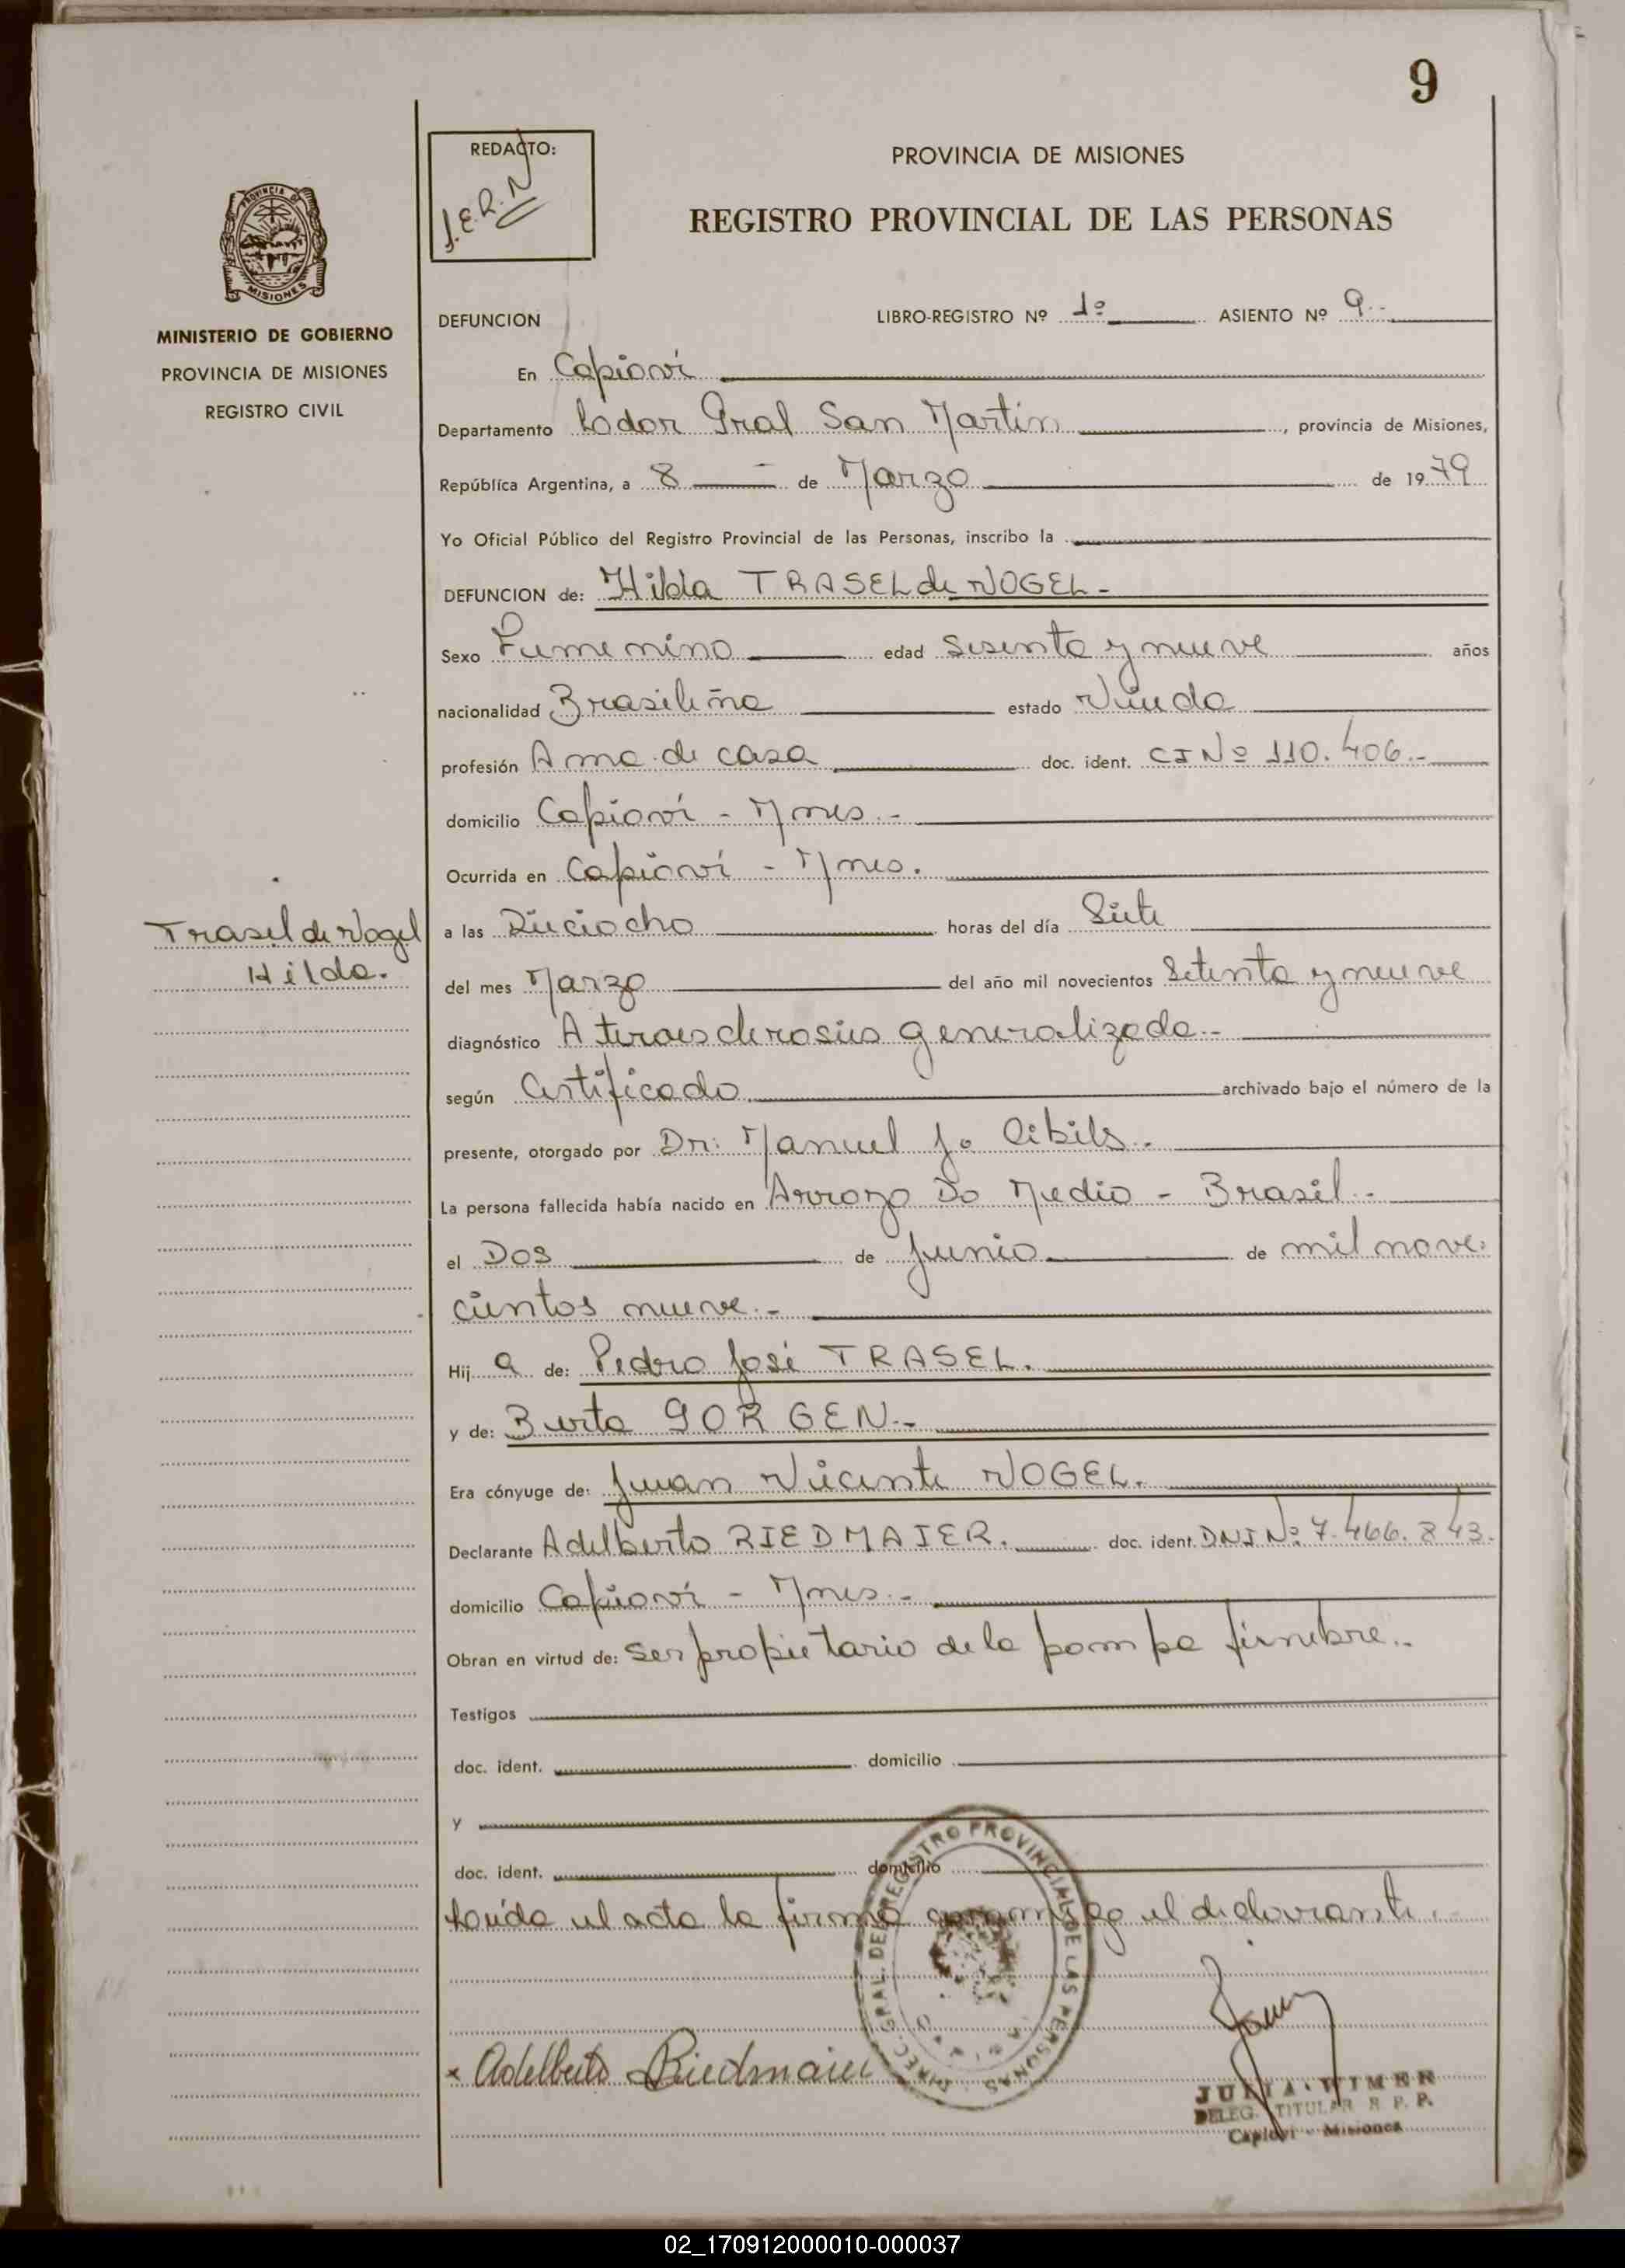 9
REDACTO:
J.E.R.N
PROVINCIA DE MISIONES
REGISTRO PROVINCIAL DE LAS PERSONAS
PROVINCIA DE
MISIONES
MINISTERIO DE GOBIERNO
PROVINCIA DE MISIONES
REGISTRO CIVIL
DEFUNCION LIBRO-REGISTRO Nº 1º ASIENTO Nº 9.-
En Capioví
Departamento Lbdor Gral San Martín, provincia de Misiones,
República Argentina, a 8 de Marzo de 1979
Yo Oficial Público del Registro Provincial de las Personas, inscribo la
DEFUNCION de: Hilda TRASEL de VOGEL-
Sexo Fumemino edad Sesenta y nueve años
nacionalidad Brasileña estado Viuda
profesión Ama de casa doc. ident. CI Nº 110.406.-
domicilio Capioví - Mnes.-
Ocurrida en Capioví - Mnes.
Trasel de Vogel
Hilda.
a las Dieciocho horas del día Siete
del mes Marzo del año mil novecientos Setenta y nueve
diagnóstico Ateroesclerosis generalizada.-
según Certificado archivado bajo el número de la
presente, otorgado por Dr: Manuel J. Cibils.-
La persona fallecida había nacido en Arroyo Do Medio - Brasil.-
el Dos de Junio de mil nove-
cientos nueve.-
Hij a de: Pedro José TRASEL.
y de: Berta GORGEN.-
Era cónyuge de: Juan Vicente VOGEL.
Declarante Adelberto RIEDMAIER. doc. ident. DNI Nº 7.466.843.
domicilio Capioví - Mnes.-
Obran en virtud de: ser propietario de la pompa fúnebre.-
Testigos
doc. ident. domicilio
y
doc. ident. domicilio
Leída el acta la firma conmigo el declarante.
DIREC. GRAL. DEL REGISTRO PROVINCIAL DE LAS PERSONAS
x Adelberto Riedmaier
JULIA WIMER
DELEG. TITULAR R. P. P.
Capioví - Misiones
02_170912000010-000037